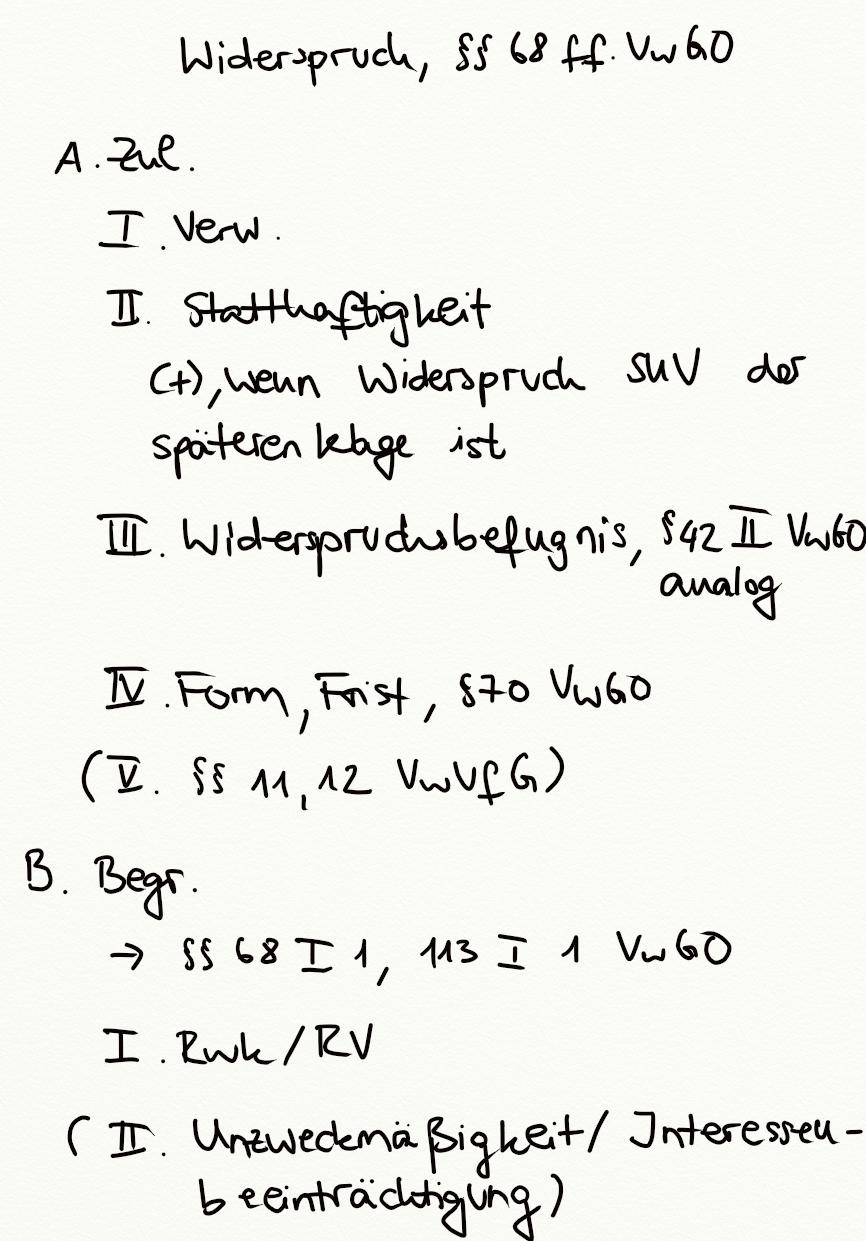 Widerspruch, §§ 68 ff. VwGO
A. Zul.
I. Verw.
II. Statthaftigkeit
(+), wenn Widerspruch SUV der
späteren Klage ist
III. Widerspruchsbefugnis, § 42 II VwGO
analog
IV. Form, Frist, § 70 VwGO
(V. §§ 11, 12 VwVfG)
B. Begr.
→ §§ 68 I 1, 113 I 1 VwGO
I. Rwk/RV
(II. Unzweckmäßigkeit/Interessen-
beeinträchtigung)